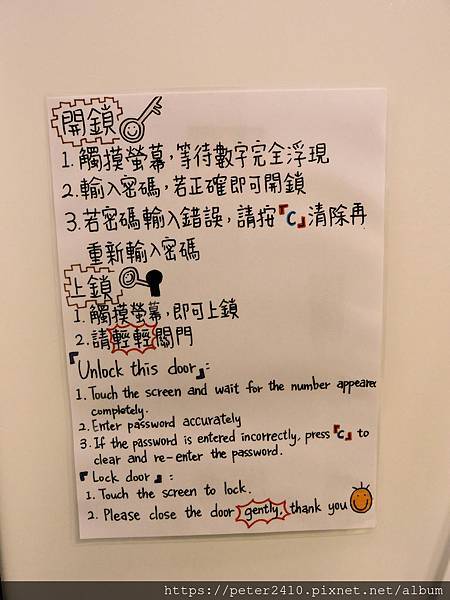 開鎖
1. 觸摸螢幕,等待數字完全浮現
2. 輸入密碼,若正確即可開鎖
3. 若密碼輸入錯誤,請按『C』清除再
重新輸入密碼
上鎖
1. 觸摸螢幕,即可上鎖
2. 請輕輕關門
『Unlock this door』:
1. Touch the screen and wait for the number appeared
completely.
2. Enter password accurately
3. If the password is entered incorrectly, press『C』to
clear and re-enter the password.
『Lock door』:
1. Touch the screen to lock.
2. Please close the door gently, thank you
https://peter2410.pixnet.net/album